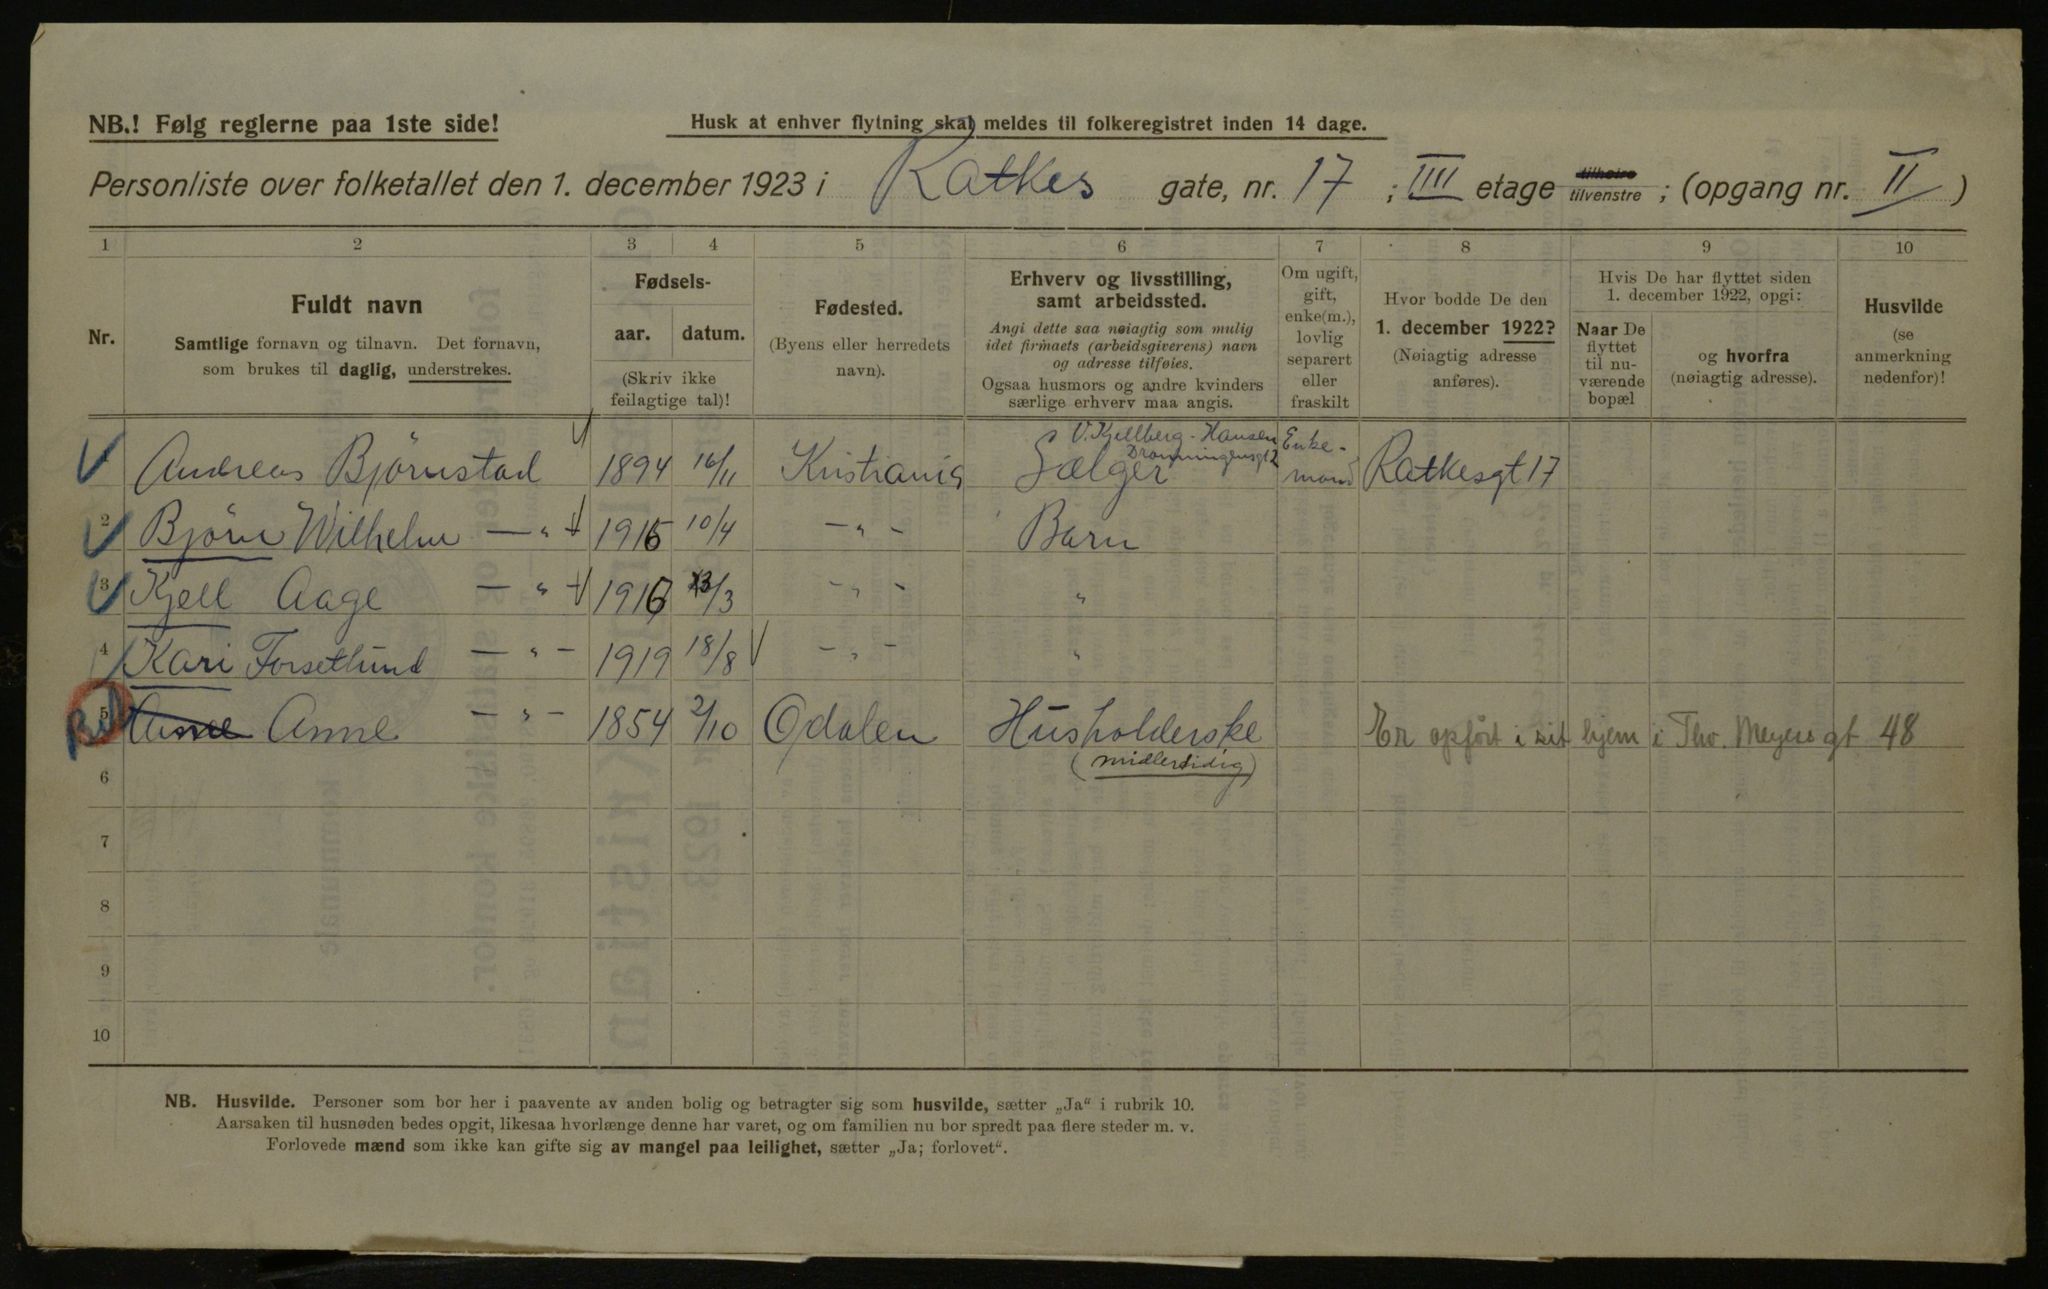 NB.! Følg reglerne paa 1ste side!
Husk at enhver flytning skal meldes til folkeregistret inden 14 dage.
Personliste over folketallet den 1. december 1923 i Ratkes gate, nr. 17 ; IIII etage tilhøire tilvenstre ; (opgang nr. II )
1 2 3 4 5 6 7 8 9 10
Nr.
Fuldt navn
Samtlige fornavn og tilnavn. Det fornavn,
som brukes til daglig, understrekes.
Fødsels-
aar. datum.
(Skriv ikke
feilagtige tal)!
Fødested.
(Byens eller herredets
navn).
Erhverv og livsstilling,
samt arbeidssted.
Angi dette saa nøiagtig som mulig
idet firmaets (arbeidsgiverens) navn
og adresse tilføies.
Ogsaa husmors og andre kvinders
særlige erhverv maa angis.
Om ugift,
gift,
enke(m.),
lovlig
separert
eller
fraskilt
Hvor bodde De den
1. december 1922?
(Nøiagtig adresse
anføres).
Hvis De har flyttet siden
1. december 1922, opgi:
Naar De
flyttet
til nu-
værende
bopæl
og hvorfra
(nøiagtig adresse).
Husvilde
(se
anmerkning
nedenfor)!
V. Kjellberg-Hansen
Dronningensgt 2
Andreas Bjørnstad 1894 16/11 Kristiania Sælger Enke-mand Ratkesgt 17
2 Bjørn Wilhelm — " — 1915 10/4 — " — Barn
3 Kjell Aage — " — 1916 /3 — " — "
4 Kari Forsetlund — " — 1919 18/8 — " — "
5 Anne Anne — " — 1854 2/10 Odalen Husholderske Er opført i sit hjem i Thv. Meyers gt 48
(midlertidig)
6
7
8
9
10
NB. Husvilde. Personer som bor her i paavente av anden bolig og betragter sig som husvilde, sætter „Ja“ i rubrik 10.
Aarsaken til husnøden bedes opgit, likesaa hvorlænge denne har varet, og om familien nu bor spredt paa flere steder m. v.
Forlovede mænd som ikke kan gifte sig av mangel paa leilighet, sætter „Ja; forlovet“.